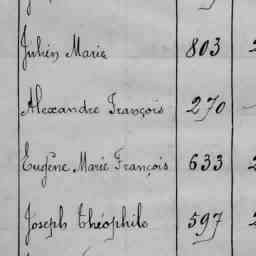 Julien Marie 803
Alexandre François 270
Eugène Marie François 633
Joseph Théophile 597